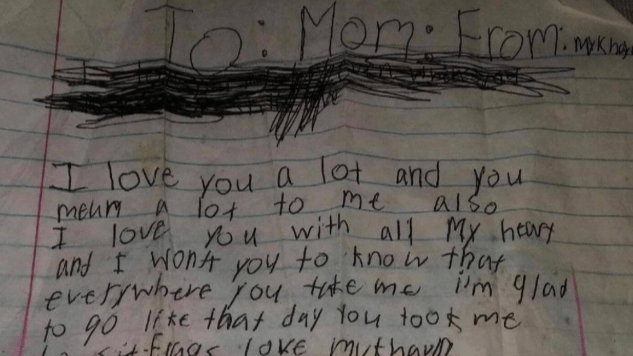 To: Mom: From:
I love you a lot and you
mean a lot to me also
I love you with all My heart
and I wont you to know that
everywhere you take me i'm glad
to go like that day you took me
love